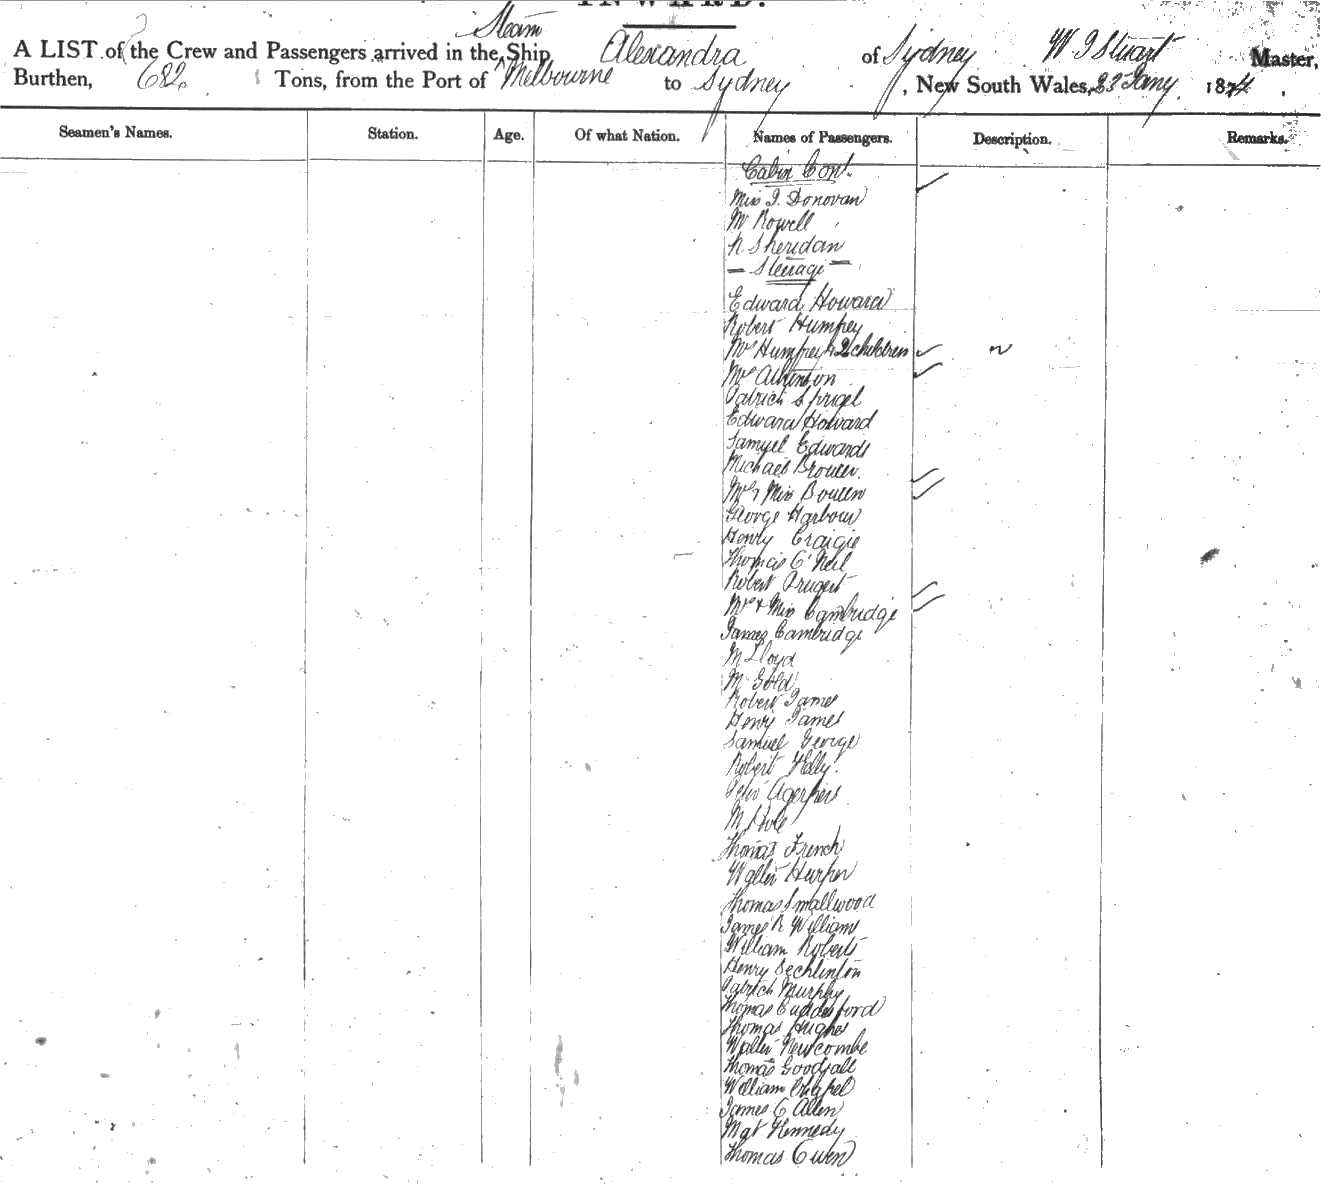 INWARD.
A LIST of the Crew and Passengers arrived in the Steam Ship Alexandra of Sydney W J Stuart Master,
Burthen, 682 Tons, from the Port of Melbourne to Sydney, New South Wales, 23 Jany 1874.
Seamen's Names. Station. Age. Of what Nation. Names of Passengers. Description. Remarks.
Cabin Cont.
Miss J. Donovan
Mr Rowell
N Sheridan
— Steerage —
Edward Howard
Robert Humfrey
Mrs Humfrey & 2 children
Mrs Atkinson
Patrick
Edward Howard
Samuel Edwards
Michael
Mrs & Miss
George Harbour
Henry Craigie
Thomas O'Neil
Robert
Mrs & Miss Cambridge
James Cambridge
M Lloyd
M Gold
Robert James
Henry James
Samuel George
Robert
M
Thomas French
Walter
Thomas Smallwood
James R Williams
William Roberts
Henry
Patrick Murphy
Thomas
Thomas Hughes
Walter Newcombe
Thomas Goodfall
William Chapel
James C Allen
Mgt Kennedy
Thomas Owen